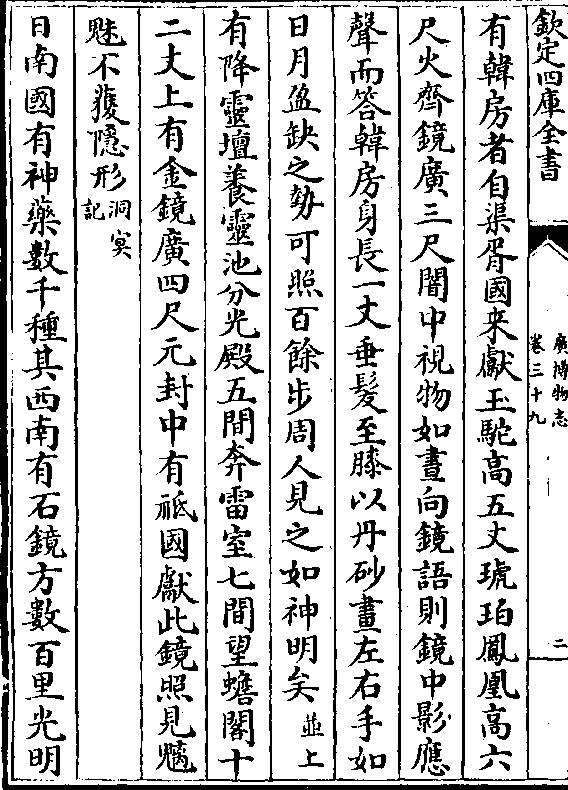 欽定四庫全書
廣博物志
卷三十九
二
有韓房者自渠胥國來獻玉駝高五丈琥珀鳳凰高六
尺火齊鏡廣三尺闇中視物如晝向鏡語則鏡中影應
聲而答韓房身長一丈垂髮至膝以丹砂畫左右手如
日月盈缺之勢可照百餘步周人見之如神明矣並上
有降靈壇養靈池分光殿五間奔雷室七間望蟾閣十
二丈上有金鏡廣四尺元封中有祗國獻此鏡照見魑
魅不蕧隱形洞㝠記
日南國有神藥數千種其西南有石鏡方數百里光明